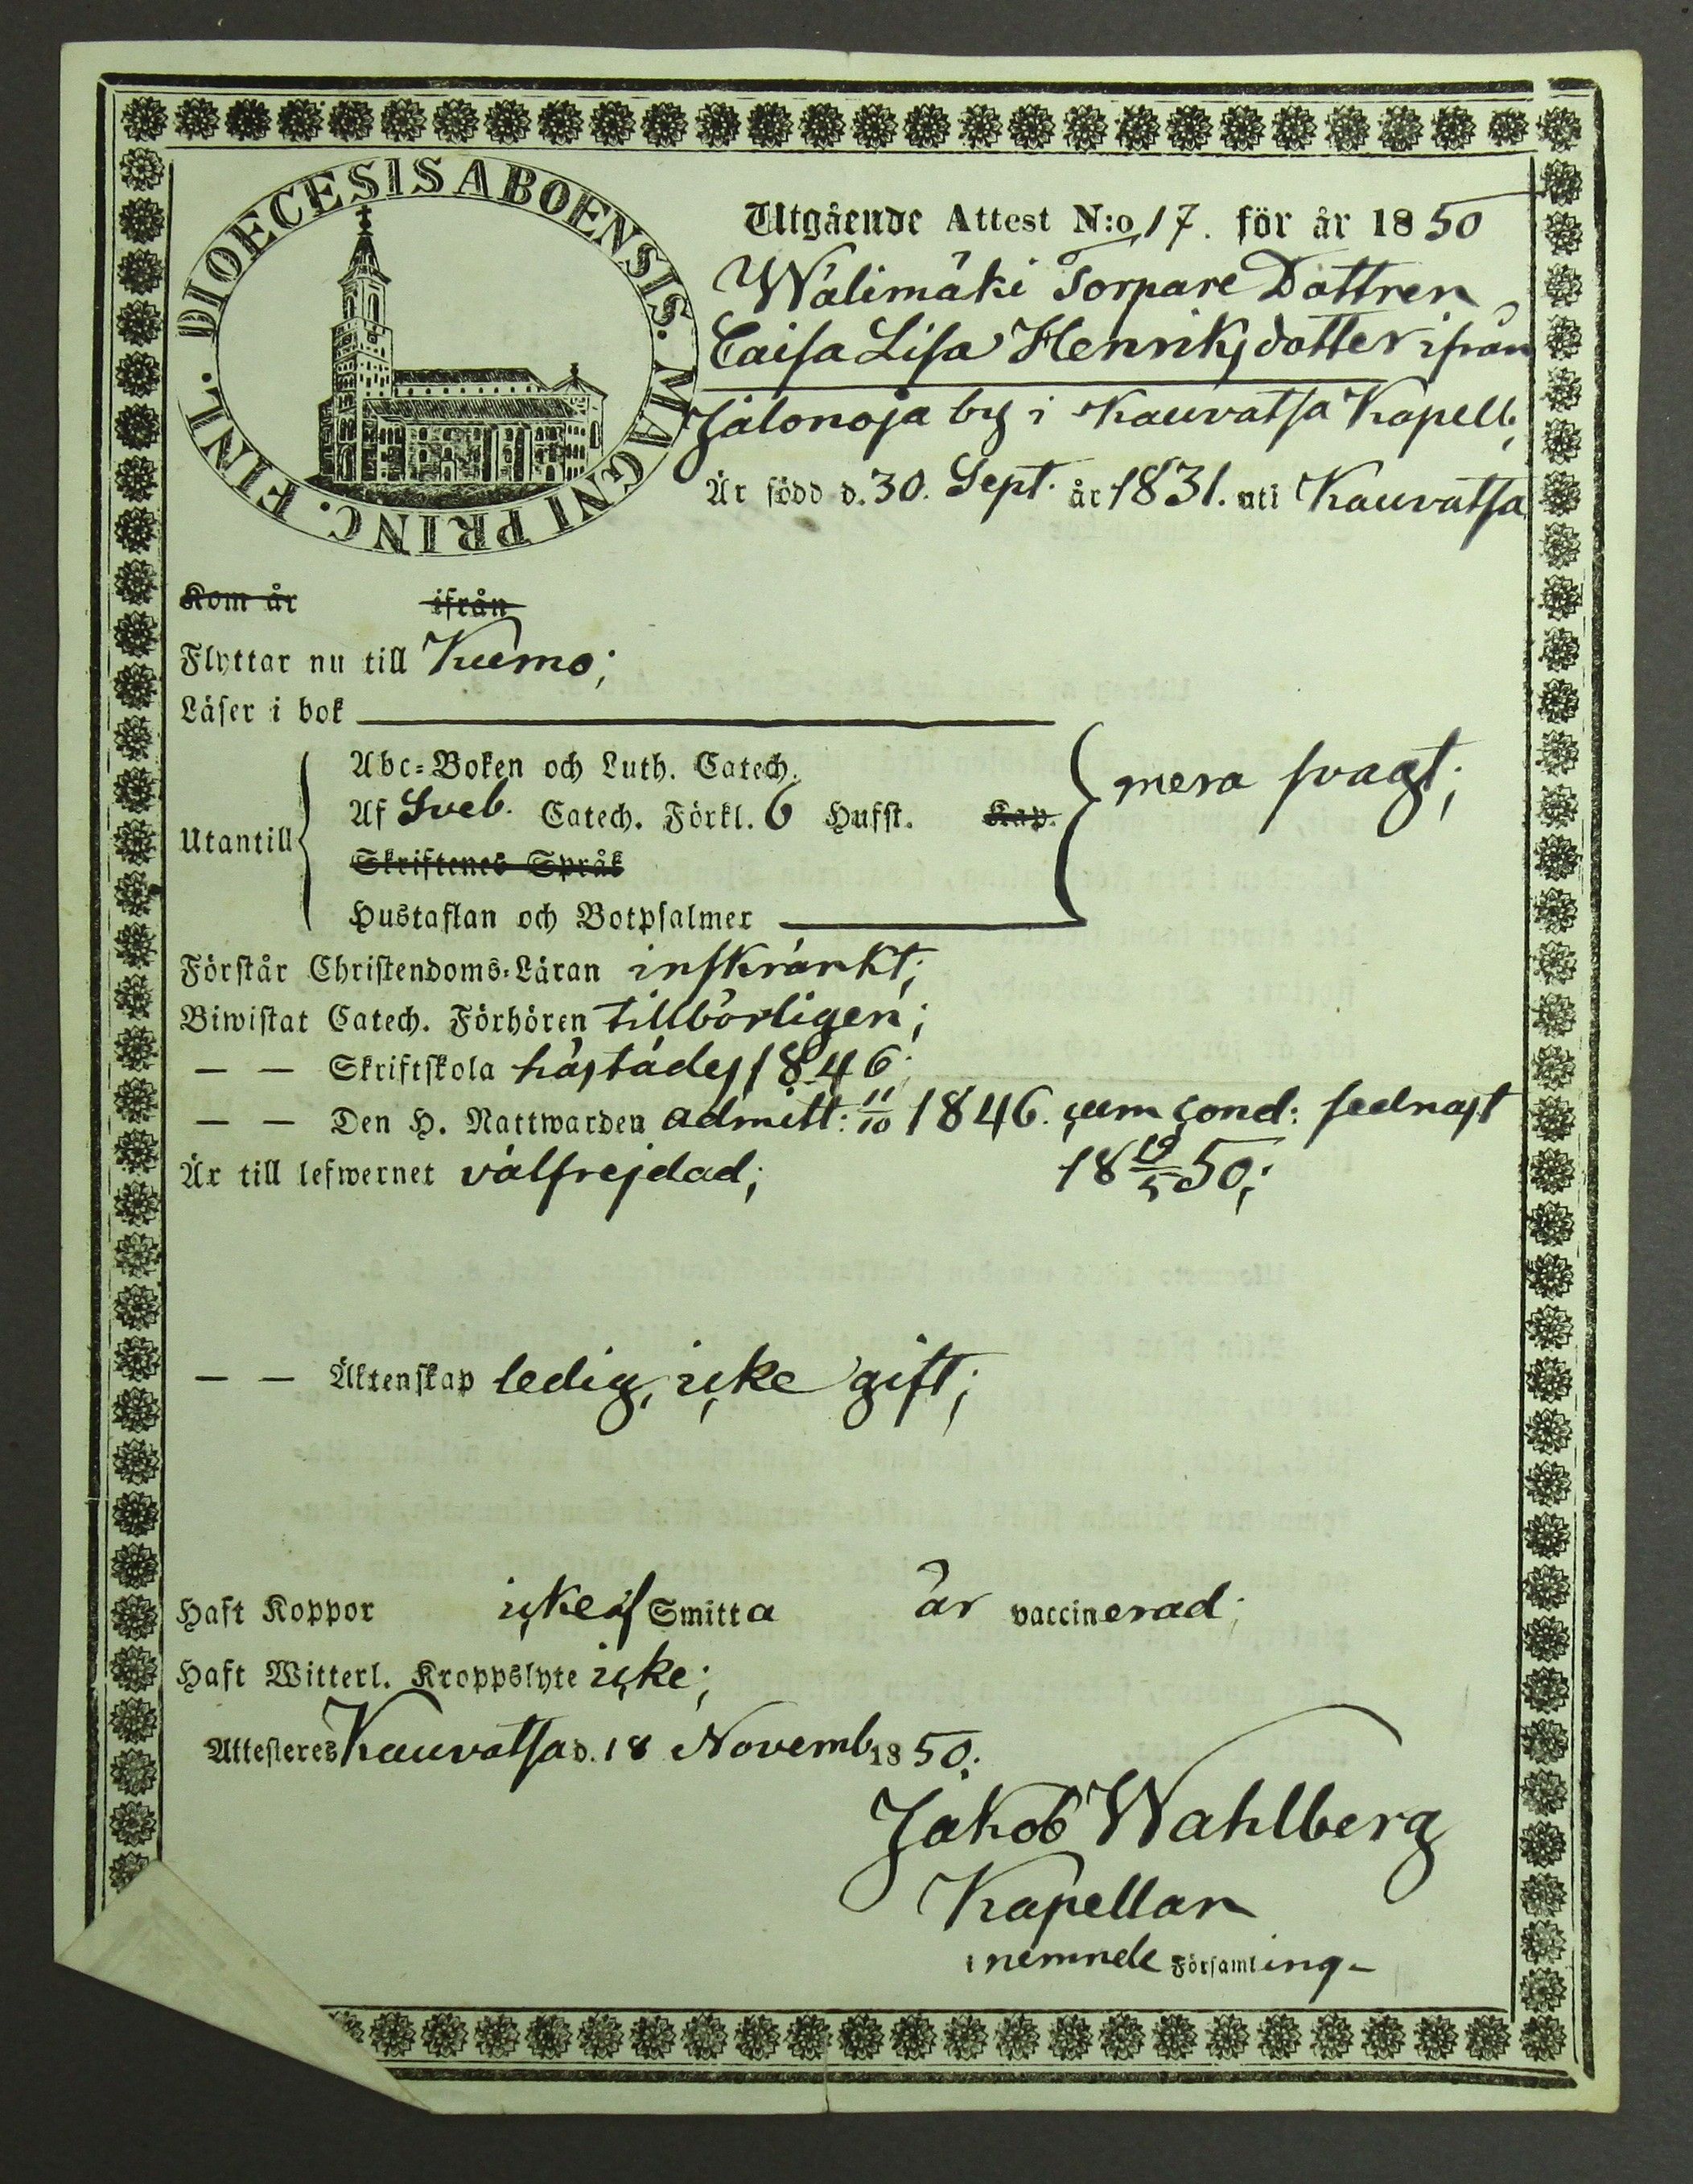 DIOECESIS ABOENSIS. MAGNI PRINC. FINL.
Utgående Attest N:o 17. för år 1850
Wälimäki Torpare Dottren
Caisa Lisa Henriksdotter ifrån
Jalonoja by i Kauvatsa Kapell;
Är född d. 30. Sept. år 1831. uti Kauvatsa
Kom år ifrån
Flyttar nu till Kumo;
Läser i bok
Abc-Boken och Luth. Catech.
mera svagt;
Af Sveb. Catech. Förkl. 6 Hufst. Kap.
Utantill
Skriftenes Språk
Hustaflan och Botpsalmer
Förstår Christendoms-Läran inskränkt;
Biwistat Catech. Förhören tillbörligen;
— — Skriftskola härstädes 1846;
— — Den H. Nattwarden admitt: 11/10 1846. cum cond: sednast
Är till lefwernet välfrejdad; 18 19/5 50;
— — Äktenskap ledig, icke gift;
Haft Koppor icke af Smitta är vaccinerad;
Haft Witterl. Kroppslyte icke;
Attesteres Kauvatsa d. 18 Novemb 1850;
Jakob Wahlberg
Kapellan
i nemnde Församling-